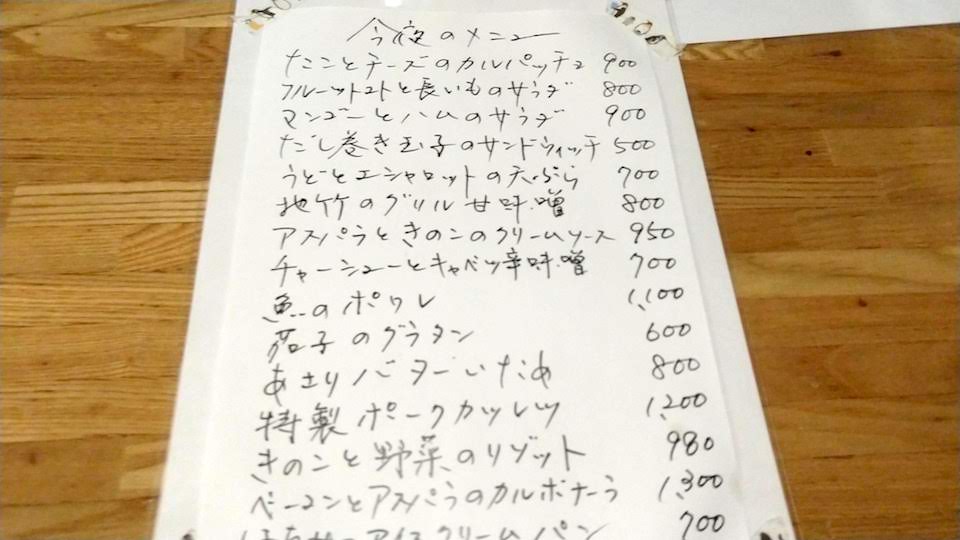 今夜のメニュー
たことチーズのカルパッチョ 900
フルーツトマトと長いものサラダ 800
マンゴーとハムのサラダ 900
だし巻き玉子のサンドウィッチ 500
うどとエシャロットの天ぷら 700
地竹のグリル 甘味噌 800
アスパラときのこのクリームソース 950
チャーシューとキャベツ辛味噌 700
魚のポワレ 1,100
茄子のグラタン 600
あさりバターいため 800
特製ポークカツレツ 1,200
きのこと野菜のリゾット 980
ベーコンとアスパラのカルボナーラ 1,300
アイスクリームパン 700